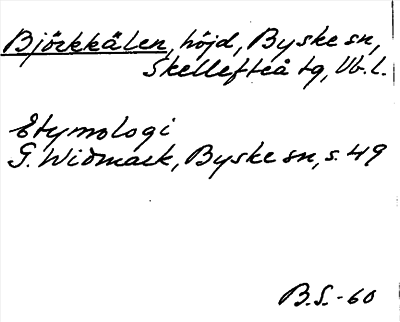 Björkkälen, höjd, Byske sn,
Skellefteå tg, Vb.l.
Etymologi
G. Widmark, Byske sn, s. 49
B.S.-60